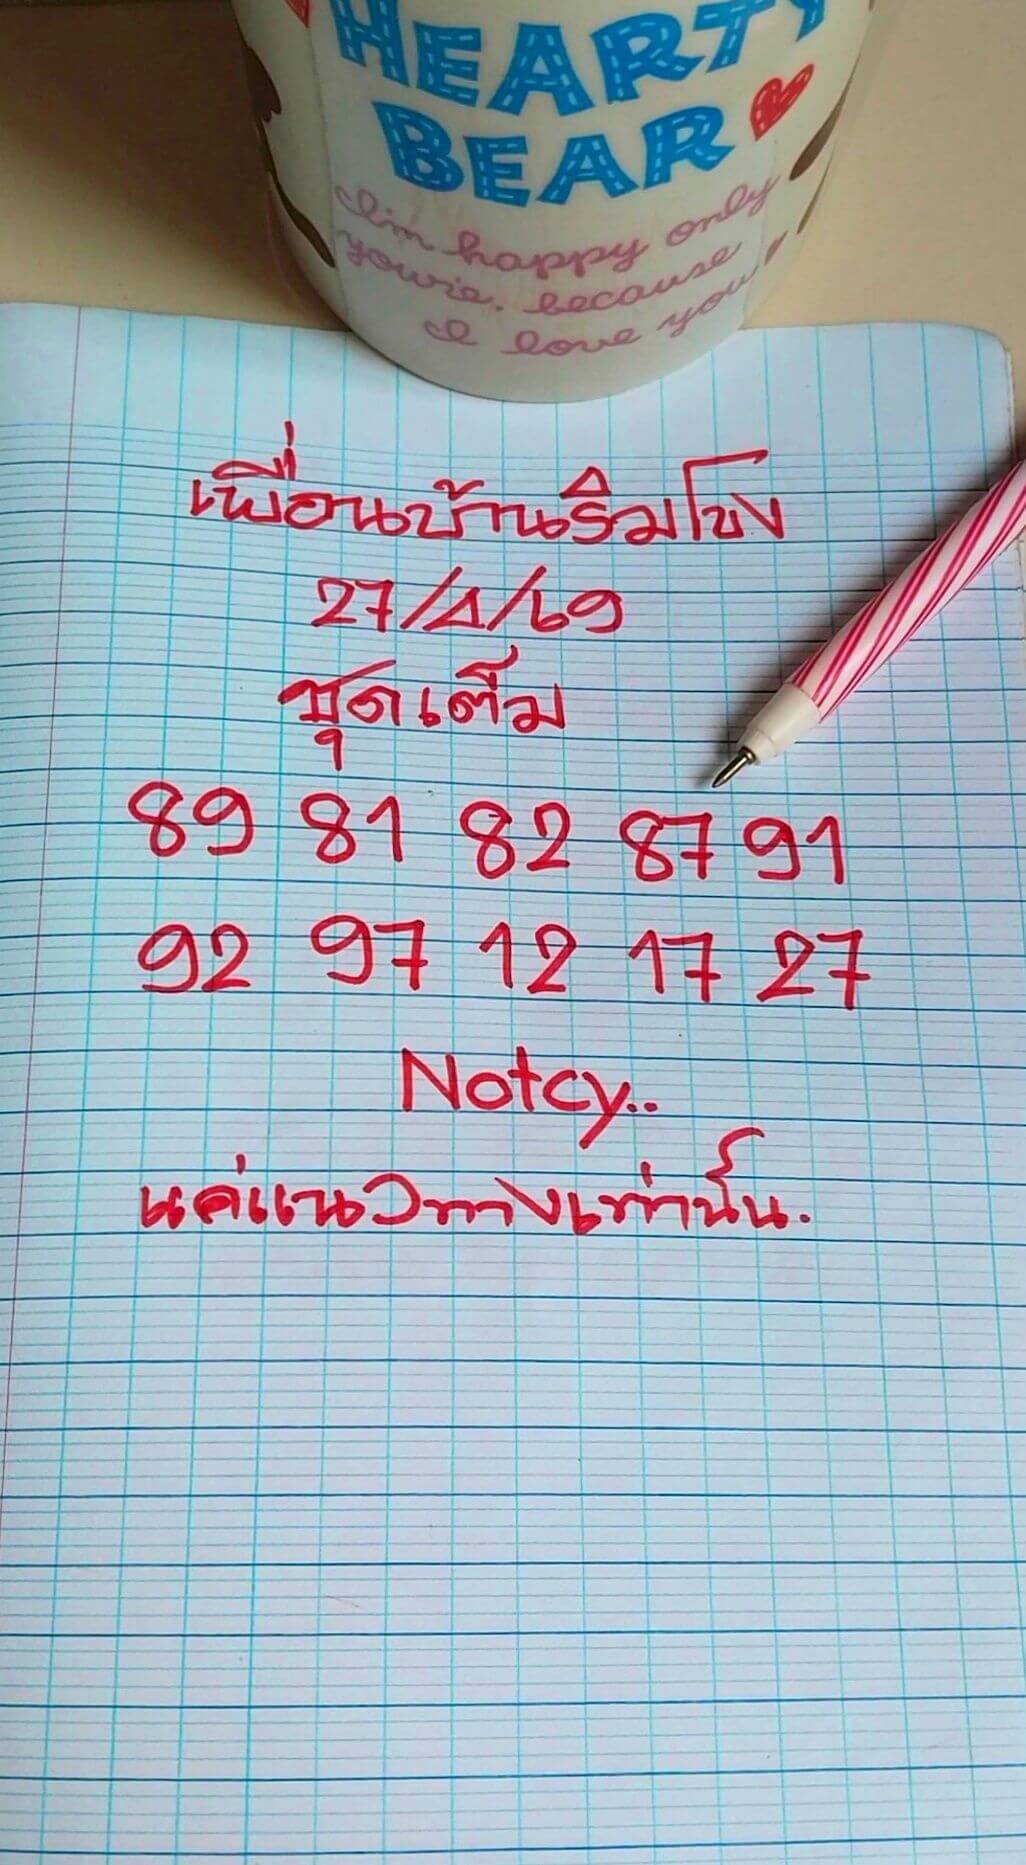 HEARTY
BEAR
I'm happy only
you're. because
I love you
เพื่อนบ้านริมโขง
27/4/69
ชุดเต็ม
89 81 82 87 91
92 97 12 17 27
Notcy..
แค่แนวทางเท่านั้น.